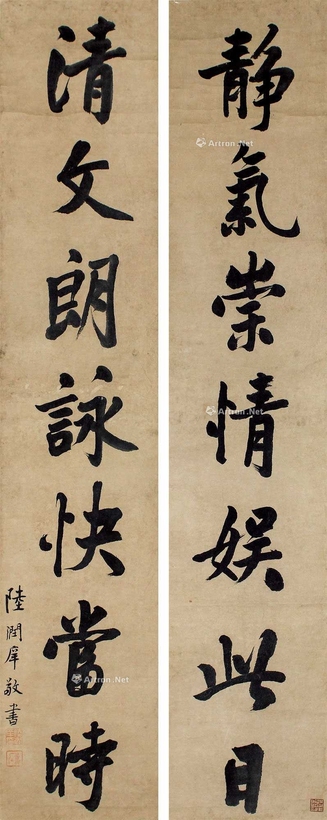 静氣崇情娱此日
清文朗詠快當時
陸潤庠敬書
Artron.Net
Artron.Net
Artron.Net
Artron.Net